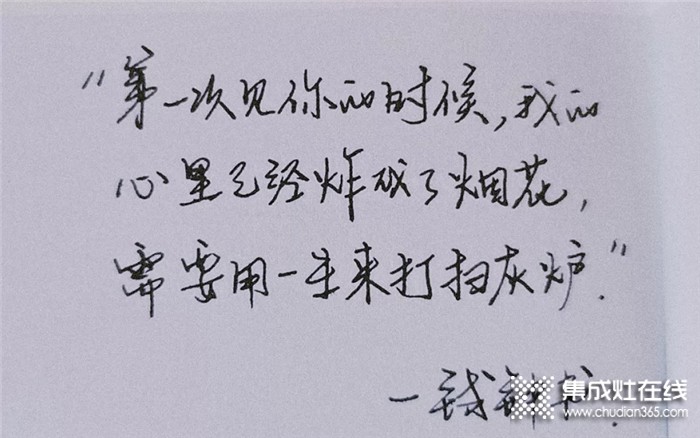 “第一次见你的时候,我的
心里已经炸成了烟花,
需要用一生来打扫灰炉.”
一钱钟书
集成灶在线
www.chudian365.com